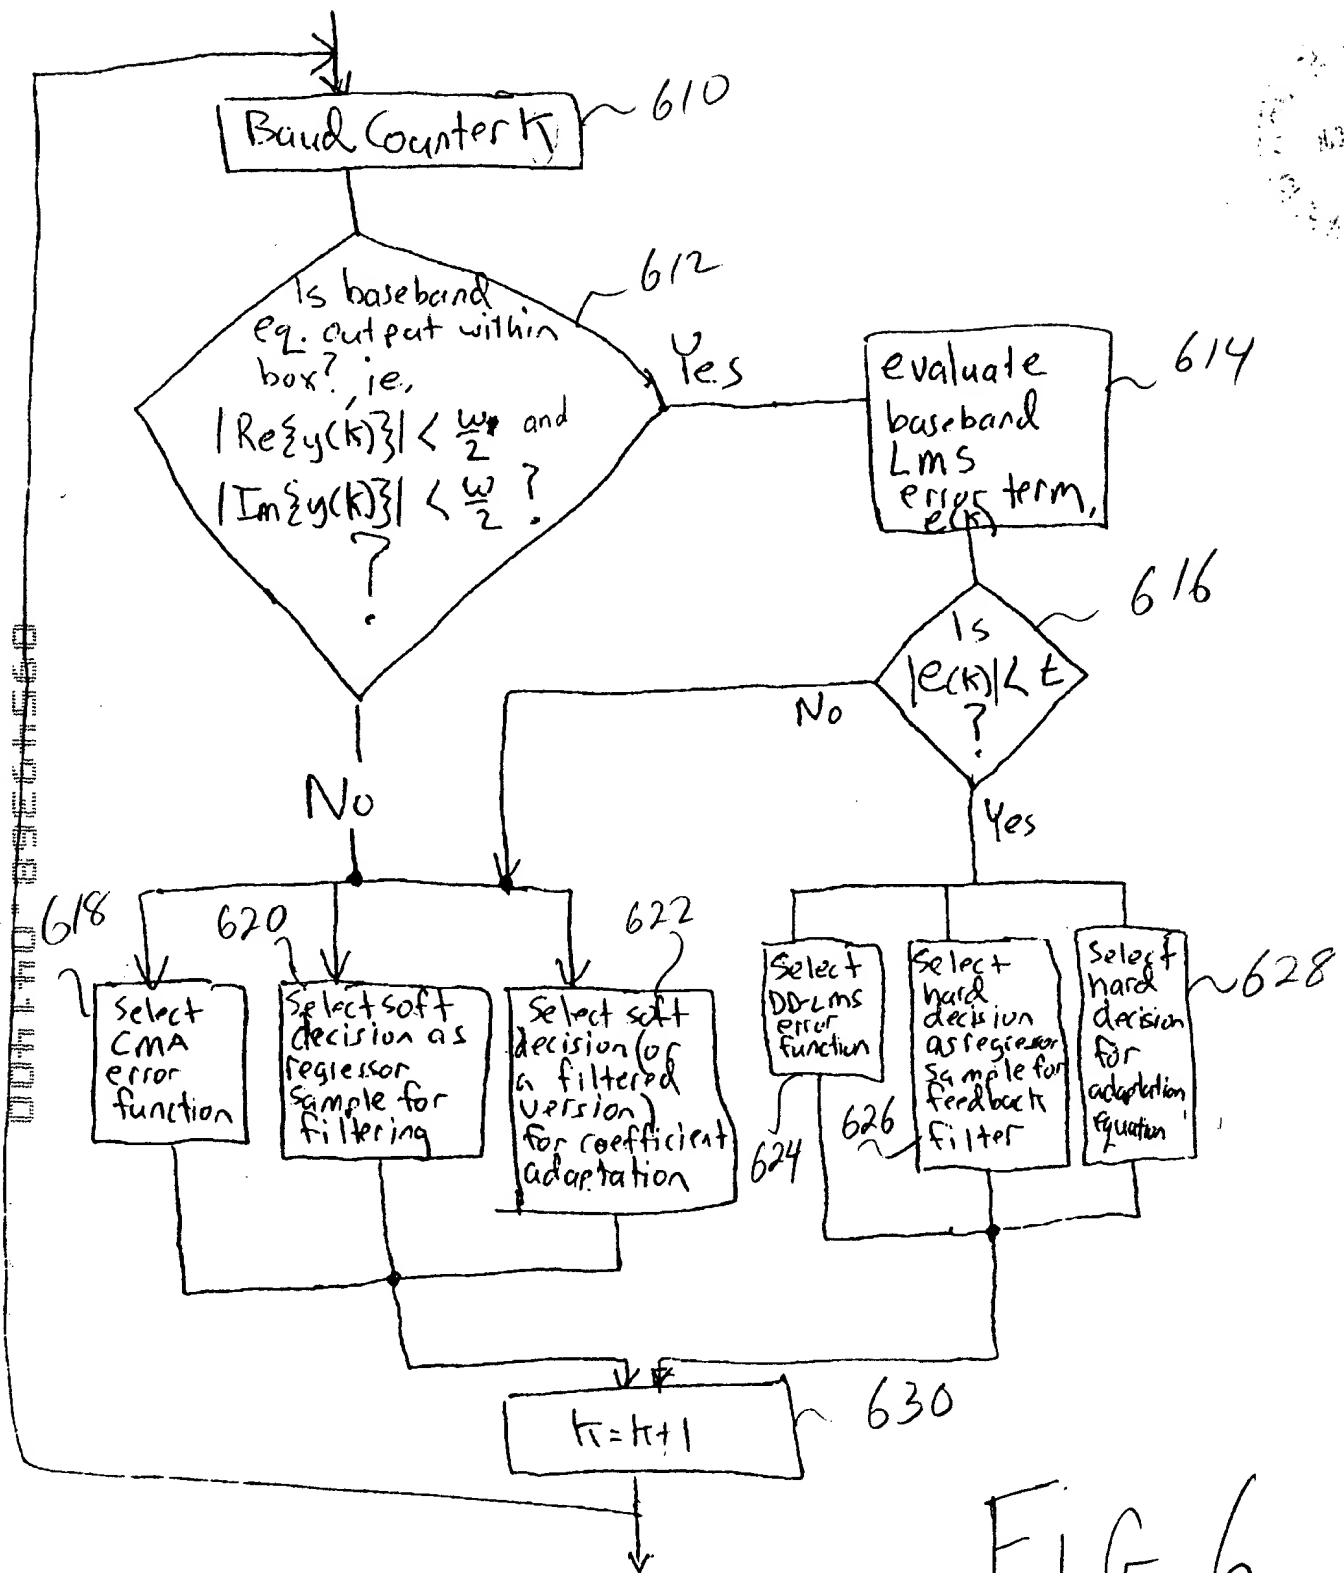 Baud Counter K
610
612
Is baseband
eq. output within
box? ie,
|Re{y(k)}| < w/2 and
|Im{y(k)}| < w/2 ?
?
Yes
evaluate
baseband
LMS
error term,
e(k)
614
616
Is
|e(k)| < t
?
No
Yes
No
618
Select
CMA
error
function
620
Select soft
decision as
regressor
sample for
filtering
622
Select soft
decision (or
a filtered
version)
for coefficient
adaptation
Select
DD-LMS
error
function
624
Select
hard
decision
as regressor
sample for
feedback
filter
626
Select
hard
decision
for
adaptation
equation
628
K = K+1
630
FIG 6